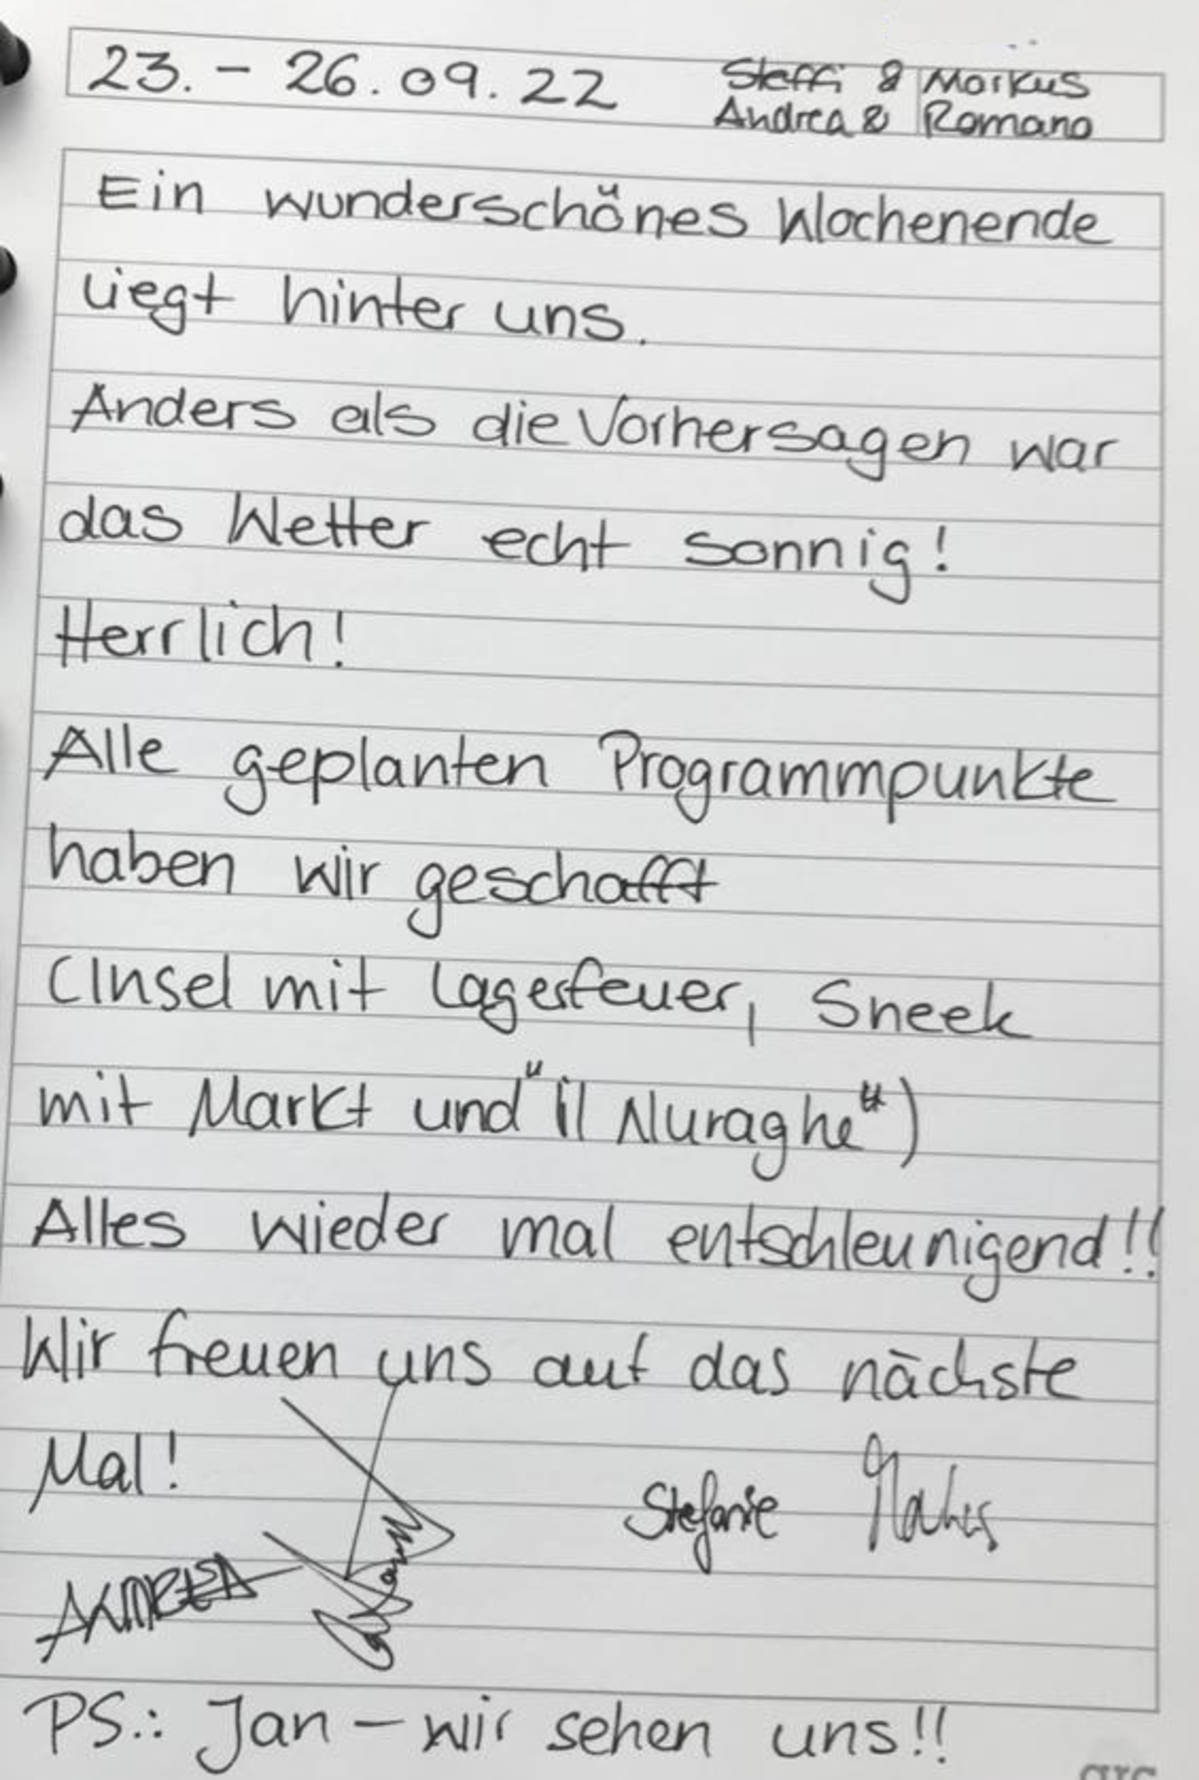 23. - 26.09.22 Steffi & Markus
Andrea & Romano
Ein wunderschönes Wochenende
liegt hinter uns.
Anders als die Vorhersagen war
das Wetter echt sonnig!
Herrlich!
Alle geplanten Programmpunkte
haben wir geschafft
(Insel mit Lagerfeuer, Sneek
mit Markt und "il Nuraghe")
Alles wieder mal entschleunigend!!
Wir freuen uns auf das nächste
Mal!
Stefanie Markus
ANDREA
PS.: Jan - wir sehen uns!!